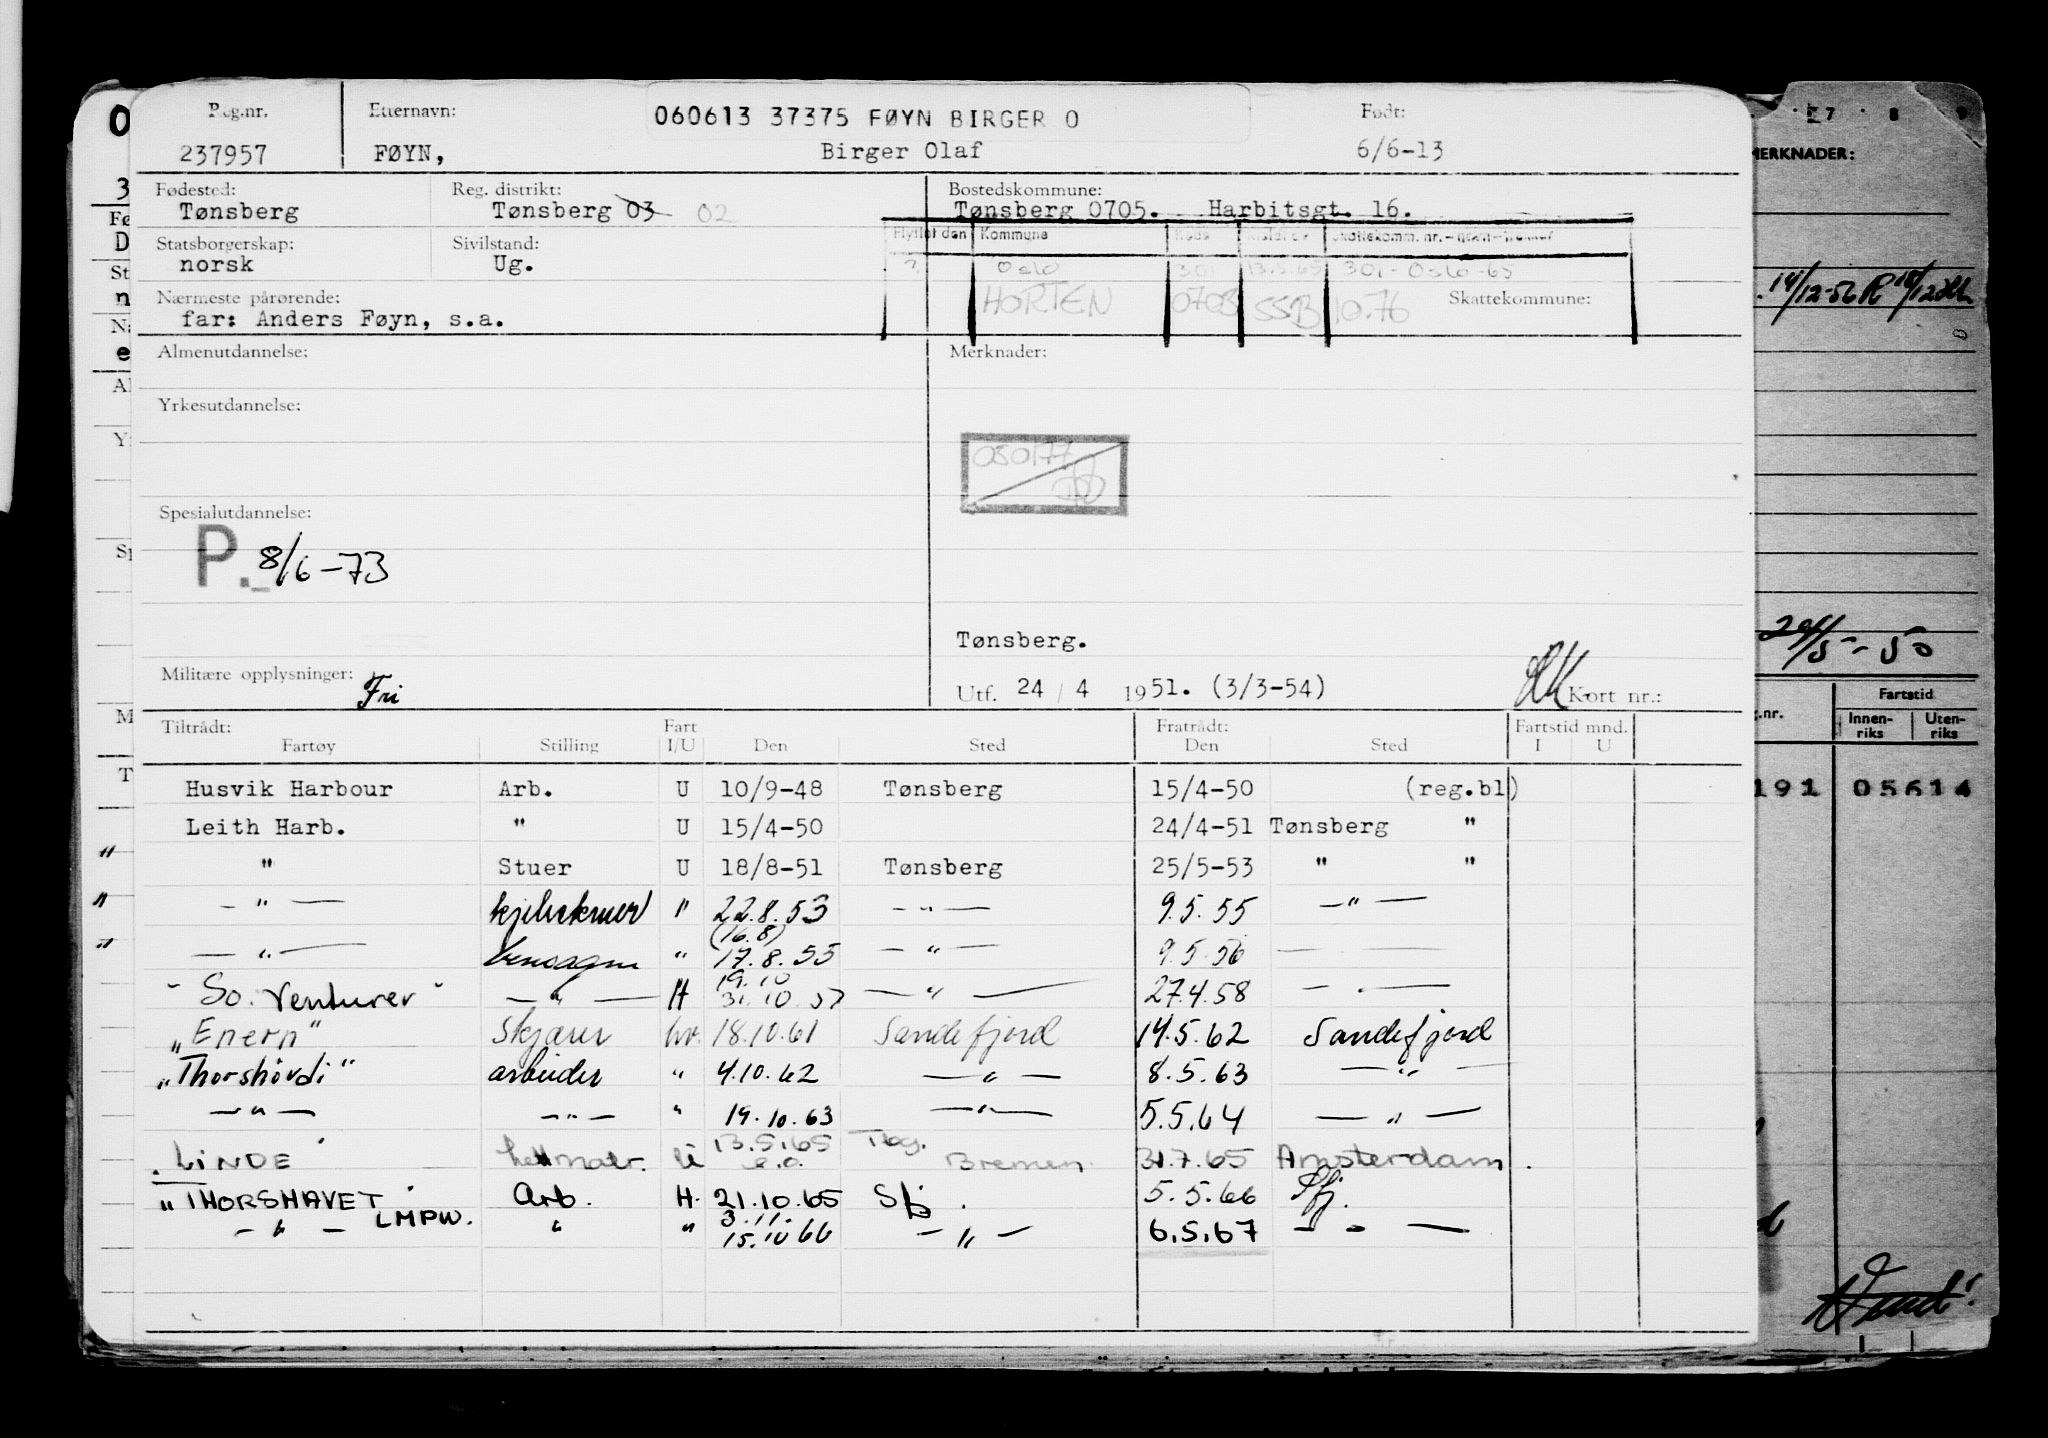 Reg.nr. Etternavn: 060613 37375 FØYN BIRGER O Født:
237957 FØYN, Birger Olaf 6/6-13
Fødested: Reg. distrikt: Bostedskommune:
Tønsberg Tønsberg 03 02 Tønsberg 0705. Harbitsgt. 16.
Statsborgerskap: Sivilstand: Flyttet den Kommune
norsk Ug. ? Oslo 301 13.5.65 301-Oslo-65
Nærmeste pårørende: HORTEN 0703 SSB 10.76 Skattekommune:
far: Anders Føyn, s.a.
Almenutdannelse: Merknader:
Yrkesutdannelse:
050177
Spesialutdannelse:
P. 8/6-73
Tønsberg.
Militære opplysninger: Fri Utf. 24/4 1951. (3/3-54) Kort nr.:
Tiltrådt: Fart Fratrådt: Fartstid mnd.
Fartøy Stilling I/U Den Sted Den Sted I U
Husvik Harbour Arb. U 10/9-48 Tønsberg 15/4-50 (reg.bl)
Leith Harb. " U 15/4-50 24/4-51 Tønsberg "
" " Stuer U 18/8-51 Tønsberg 25/5-53 " "
" — " — " 22.8.53 — " — 9.5.55 — " —
(16.8)
" — " — " 17.8.55 — " — 9.5.56 —
19.10
"So. Venturer" — " — H 31.10.57 — " — 27.4.58 — " —
"Enern" Skjærer hv. 18.10.61 Sandefjord 14.5.62 Sandefjord
"Thorshövdi" arbeider " 4.10.62 — " — 8.5.63 — " —
— " — — " — " 19.10.63 — " — 5.5.64 — " —
13.5.65 Tbg.
"LINDE" lettmatr. U e.o. Bremen. 31.7.65 Amsterdam.
"THORSHAVET" Arb. H. 21.10.65 Sfj. 5.5.66 Sfj.
LMPW. 3.11.
— " — " " 15.10 66 — " — 6.5.67 — " —
MERKNADER:
14/12-56
24/5-50
Fartstid
Innen-riks Uten-riks
191 05614